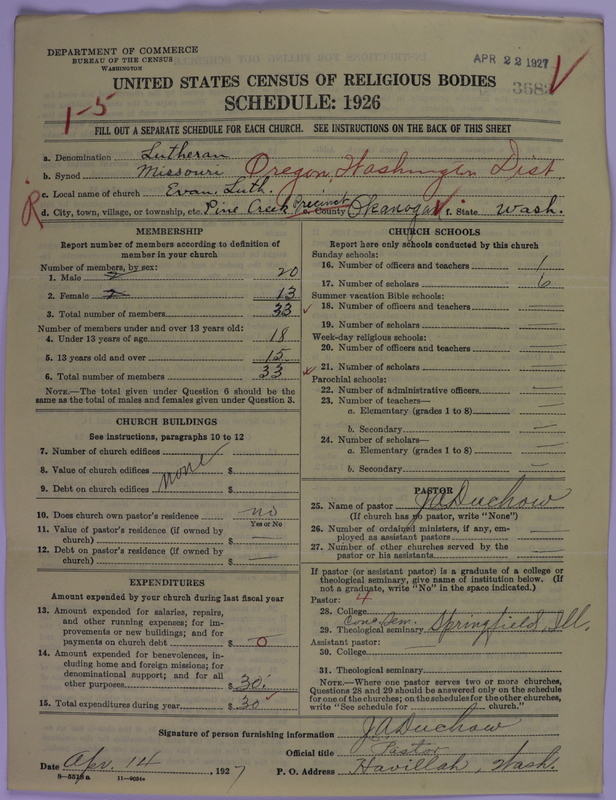 DEPARTMENT OF COMMERCE
BUREAU OF THE CENSUS
WASHINGTON
APR 22 1927
3683
UNITED STATES CENSUS OF RELIGIOUS BODIES
SCHEDULE: 1926
1-5
FILL OUT A SEPARATE SCHEDULE FOR EACH CHURCH. SEE INSTRUCTIONS ON THE BACK OF THIS SHEET
a. Denomination Lutheran
b. Synod Missouri Oregon, Washington Dist
c. Local name of church Evan. Luth.
R
d. City, town, village, or township, etc. Pine Creek Precinct e. County Okanogan f. State Wash.
MEMBERSHIP
Report number of members according to definition of member in your church
Number of members, by sex:
1. Male 20
2. Female 13
3. Total number of members 33
Number of members under and over 13 years old:
4. Under 13 years of age 18
5. 13 years old and over 15
6. Total number of members 33
NOTE.—The total given under Question 6 should be the
same as the total of males and females given under Question 3.
CHURCH BUILDINGS
See instructions, paragraphs 10 to 12
7. Number of church edifices
8. Value of church edifices $
none
9. Debt on church edifices $
10. Does church own pastor's residence no
Yes or No
11. Value of pastor's residence (if owned by
church) $ —
12. Debt on pastor's residence (if owned by
church) $ —
EXPENDITURES
Amount expended by your church during last fiscal year
13. Amount expended for salaries, repairs,
and other running expenses; for im-
provements or new buildings; and for
payments on church debt $ 0
14. Amount expended for benevolences, in-
cluding home and foreign missions; for
denominational support; and for all
other purposes $ 30.
15. Total expenditures during year $ 30
CHURCH SCHOOLS
Report here only schools conducted by this church
Sunday schools:
16. Number of officers and teachers 1
17. Number of scholars 6
Summer vacation Bible schools:
18. Number of officers and teachers —
19. Number of scholars —
Week-day religious schools:
20. Number of officers and teachers —
21. Number of scholars —
Parochial schools:
22. Number of administrative officers —
23. Number of teachers—
a. Elementary (grades 1 to 8) —
b. Secondary —
24. Number of scholars—
a. Elementary (grades 1 to 8) —
b. Secondary —
PASTOR
25. Name of pastor J A Duchow
(If church has no pastor, write "None")
26. Number of ordained ministers, if any, em-
ployed as assistant pastors —
27. Number of other churches served by the
pastor or his assistants —
If pastor (or assistant pastor) is a graduate of a college or
theological seminary, give name of institution below. (If
not a graduate, write "No" in the space indicated.)
Pastor: 4
28. College
Conc. Sem.
29. Theological seminary Springfield, Ill.
Assistant pastor:
30. College —
31. Theological seminary
NOTE.—Where one pastor serves two or more churches,
Questions 28 and 29 should be answered only on the schedule
for one of the churches; on the schedules for the other churches,
write "See schedule for church."
Signature of person furnishing information J A Duchow
Official title Pastor
Date Apr. 14, 1927 P. O. Address Havillah, Wash.
8-5518a 11-9034a